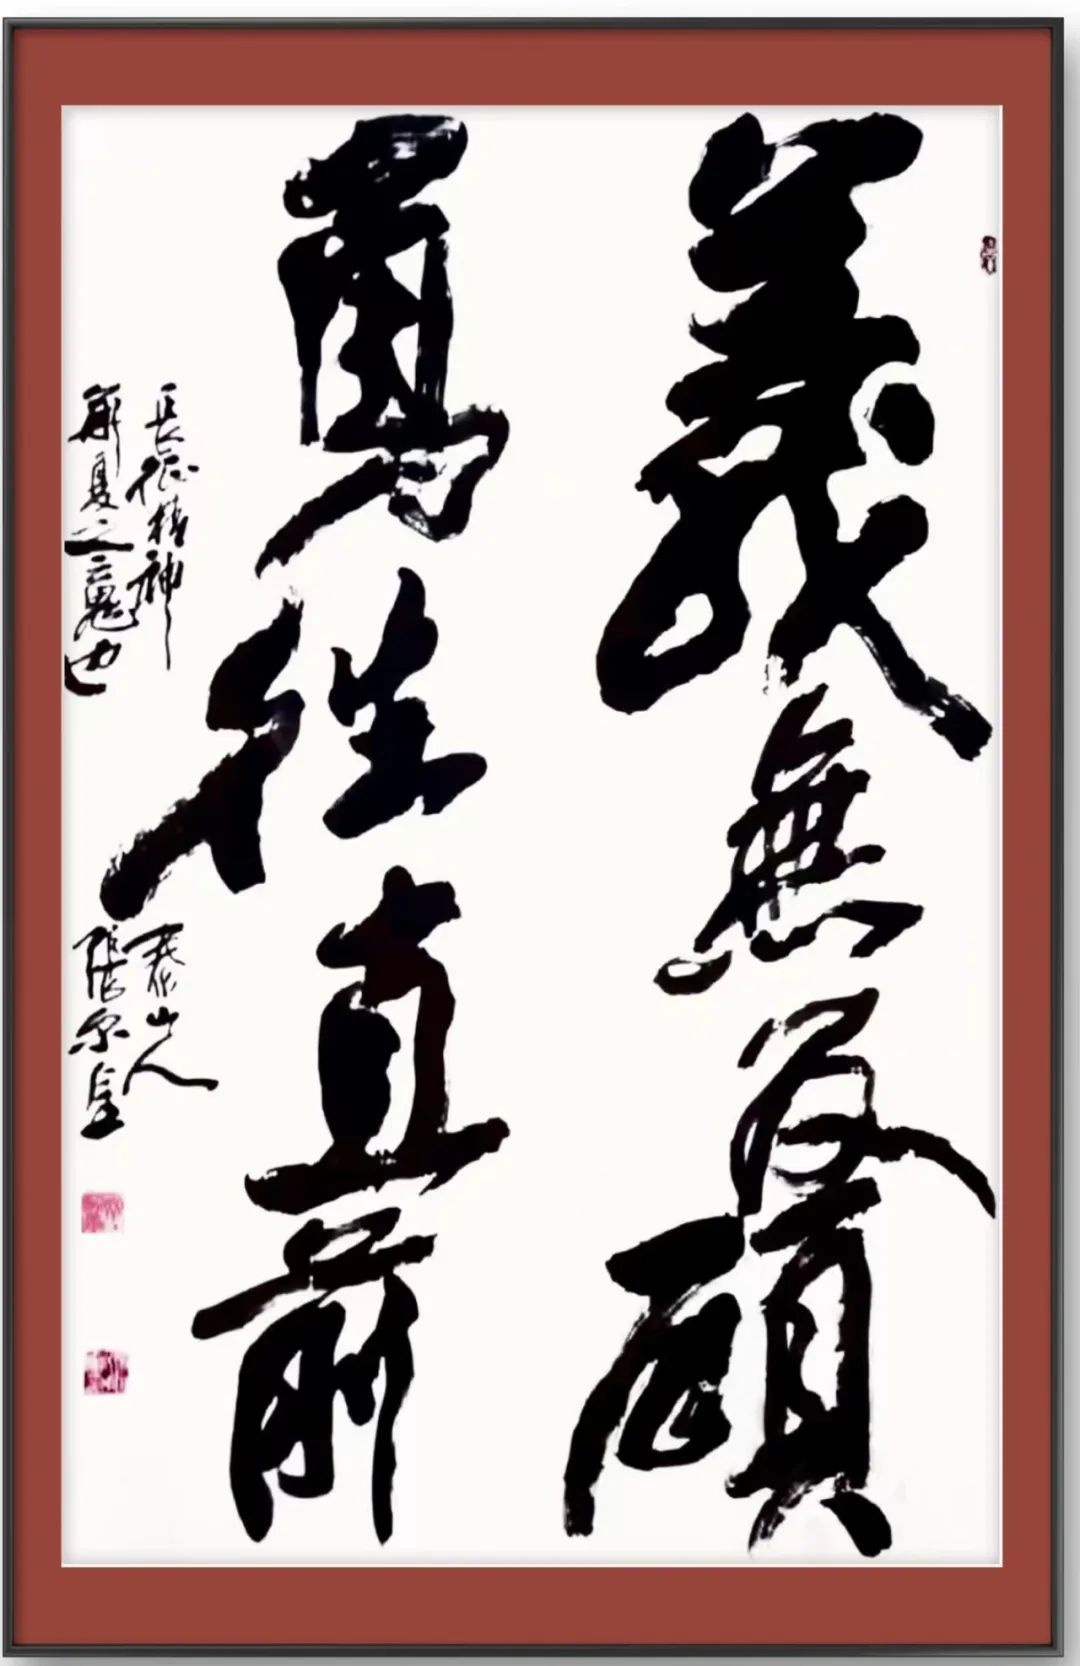 義無反顧
勇往直前
長征精神
華夏之魂也
泰山人
張尔